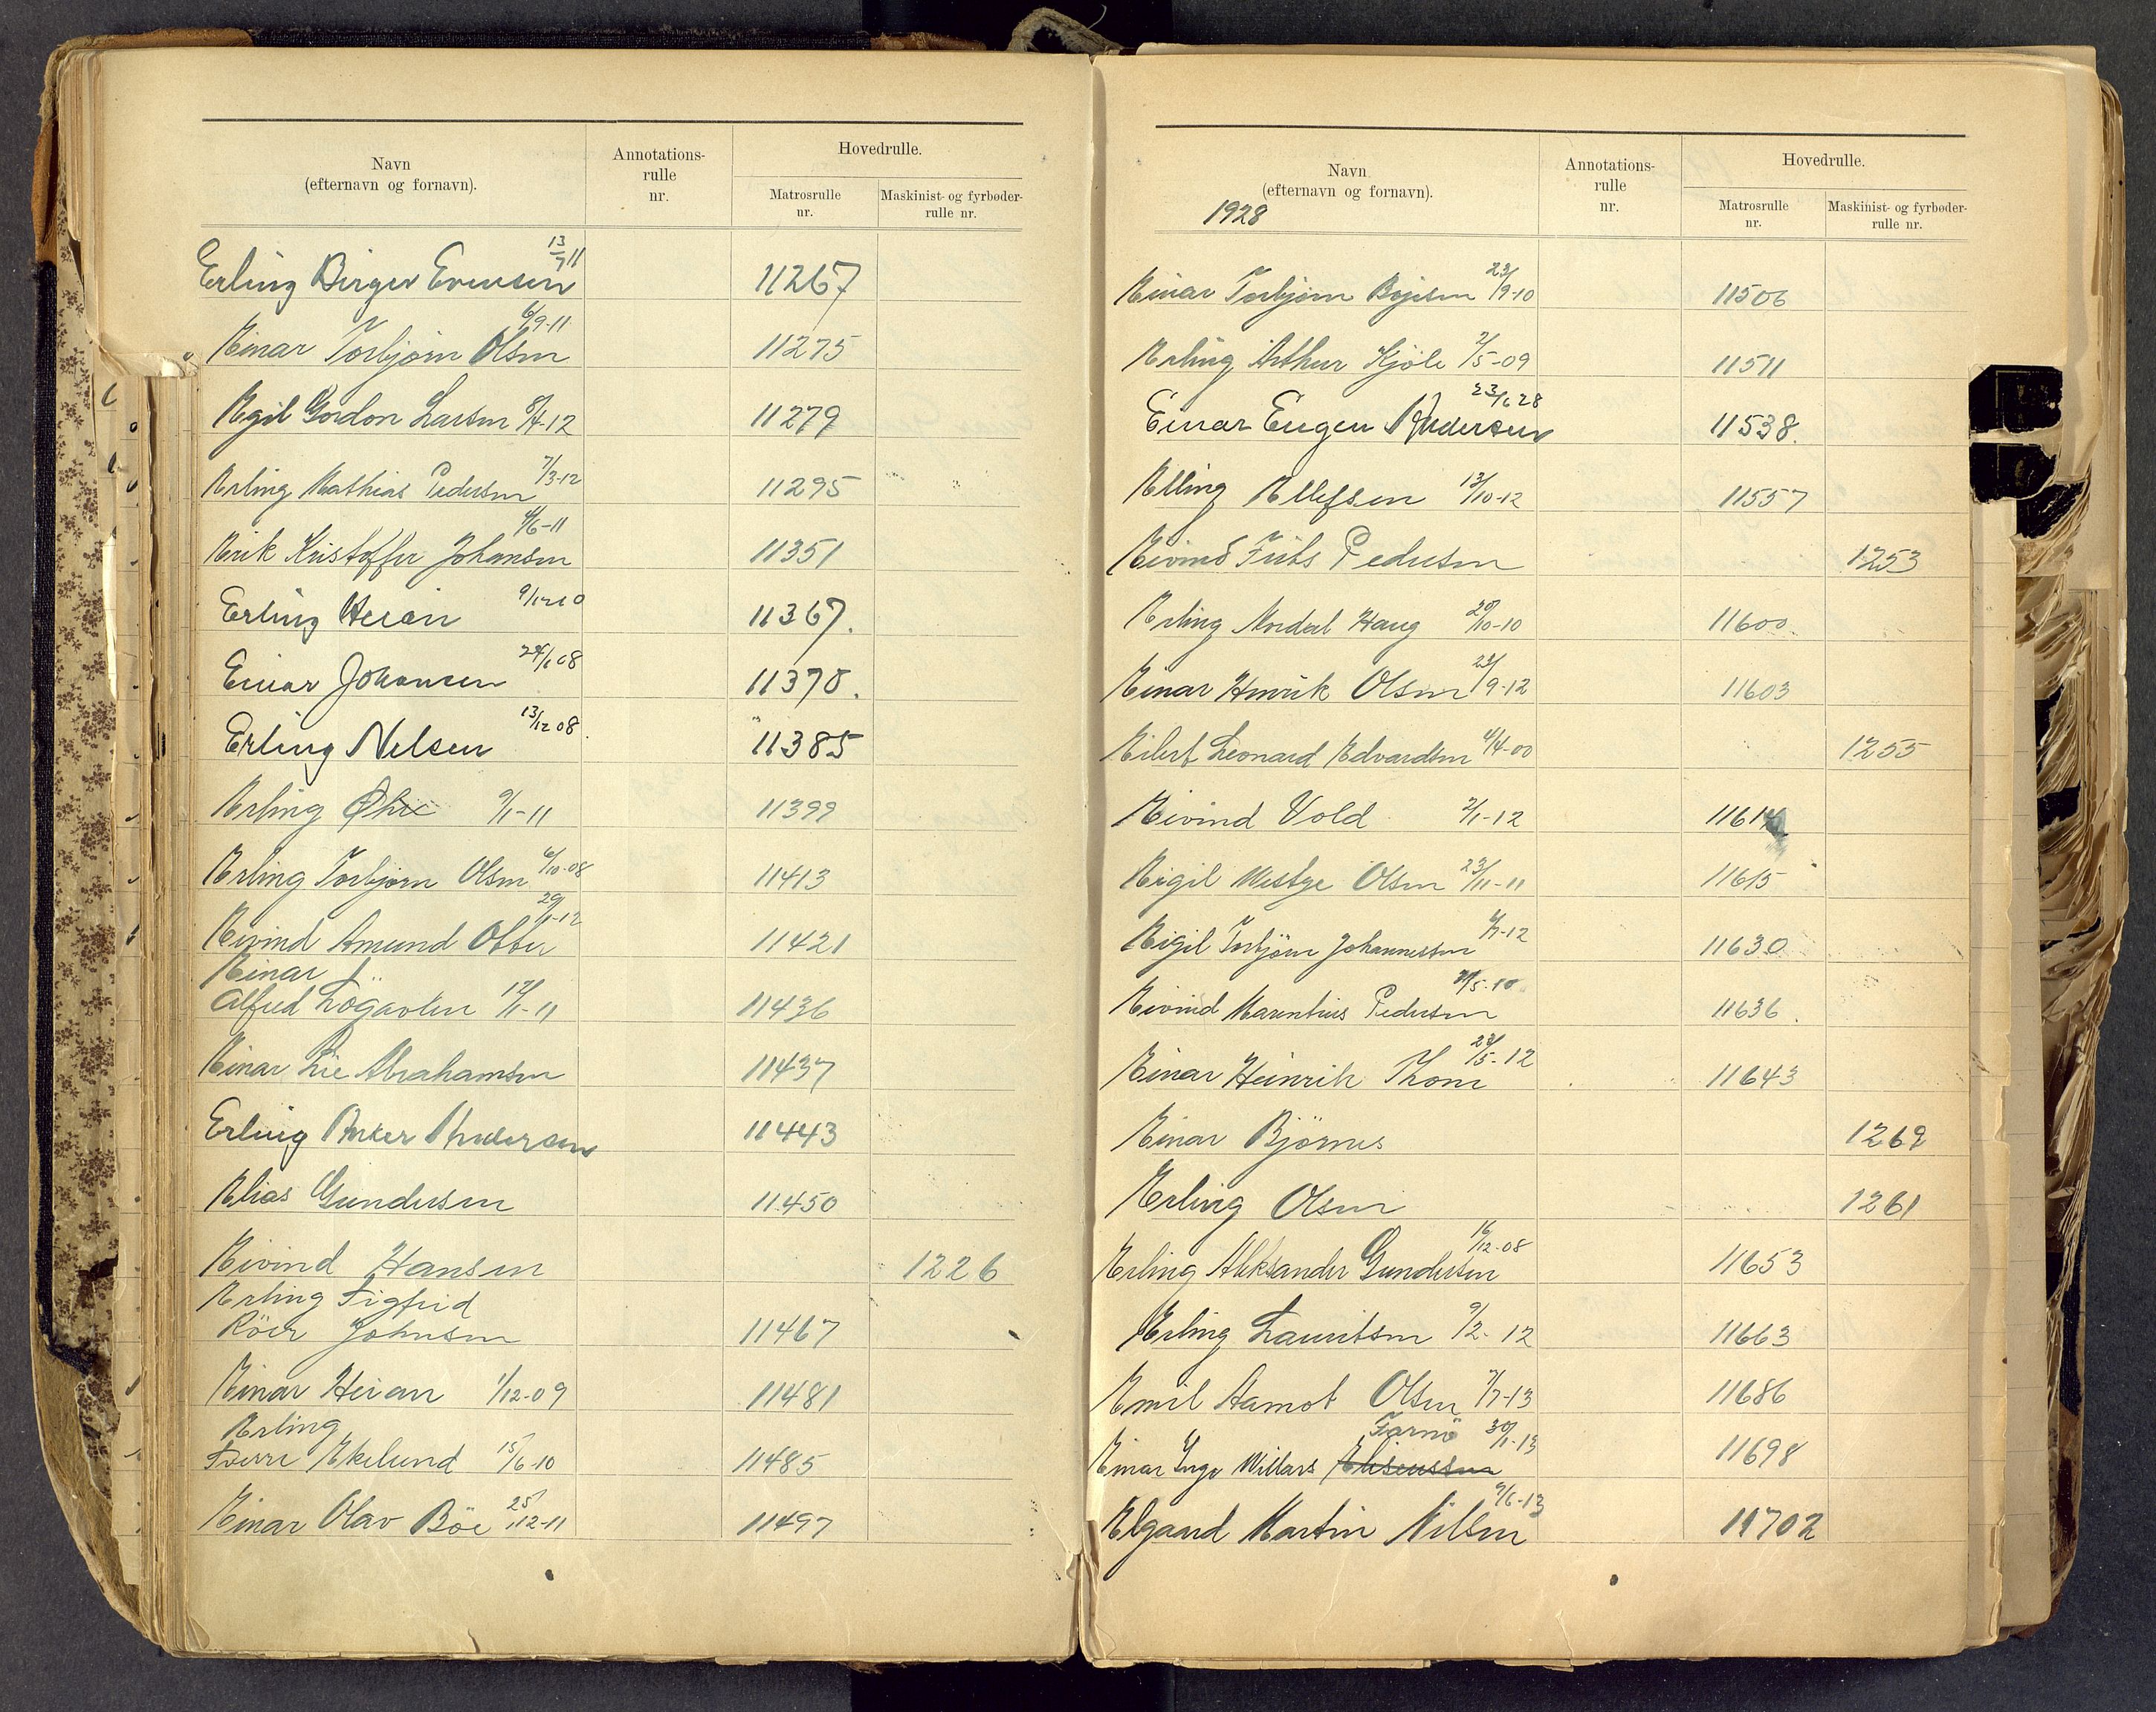 Navn
(efternavn og fornavn).
Annotations-
rulle
nr.
Hovedrulle.
Matrosrulle
nr.
Maskinist- og fyrbøder-
rulle nr.
Erling Birger Evensen 13/7 11 11267
Einar Torbjørn Olsen 6/9-11 11275
Egil Gordon Larsen 8/4-12 11279
Erling Mathias Pedersen 7/3-12 11295
Erik Kristoffer Johansen 4/6-11 11351
Erling Heian 9/12 10 11367.
Einar Johansen 24/1 08 11378.
Erling Nelsen 13/12 08. 11385
Erling 9/1-11 11399
Erling Torbjørn Olsen 6/10-08 11413
Eivind Amund 29/1-12 11421
Einar
Alfred 11436
Einar Lie Abrahamsen 11437
Erling Anker Andersen 11443
Elias Gundersen 11450
Eivind Hansen 1226
Erling Sigfrid
Röer Johnsen 11467
Einar Heian 1/12-09 11481
Erling
Sverre Ekelund 15/6-10 11485
Einar Olav Böe 25/12-11 11497
Navn
(efternavn og fornavn).
1928
Annotations-
rulle
nr.
Hovedrulle.
Matrosrulle
nr.
Maskinist- og fyrbøder-
rulle nr.
Einar Torbjørn Bojesen 23/9-10 11506
Erling Arthur Kjöle 2/5-09 11511
Einar Eugen Andersen 23/6 28 11538.
Elling Ellefsen 13/10-12 11557
Eivind Frits Pedersen 1253
Erling Nordal Haug 20/10-10 11600
Einar Henrik Olsen 23/9-12 11603
Eilert Leonard Edvardsen 4/4-00 1255
Eivind Vold 2/1-12 11614
Eigil Olsen 23/11-11 11615
Eigil Torbjörn Johannessen 11630
Eivind Marentius Pedersen 11636.
Einar Heinrik Thom 23/5-12 11643
Einar Björnes 1269
Erling Olsen 1261
Erling Aleksander Gundersen 16/12-08 11653
Erling Lauritsen 9/2-12 11663
Emil Aamot Olsen 7/7-13 11686
Farnö 30/1-13
Einar Inge Willars Eliseussen 11698
Elgaard Martin Nilsen 9/6-13 11702